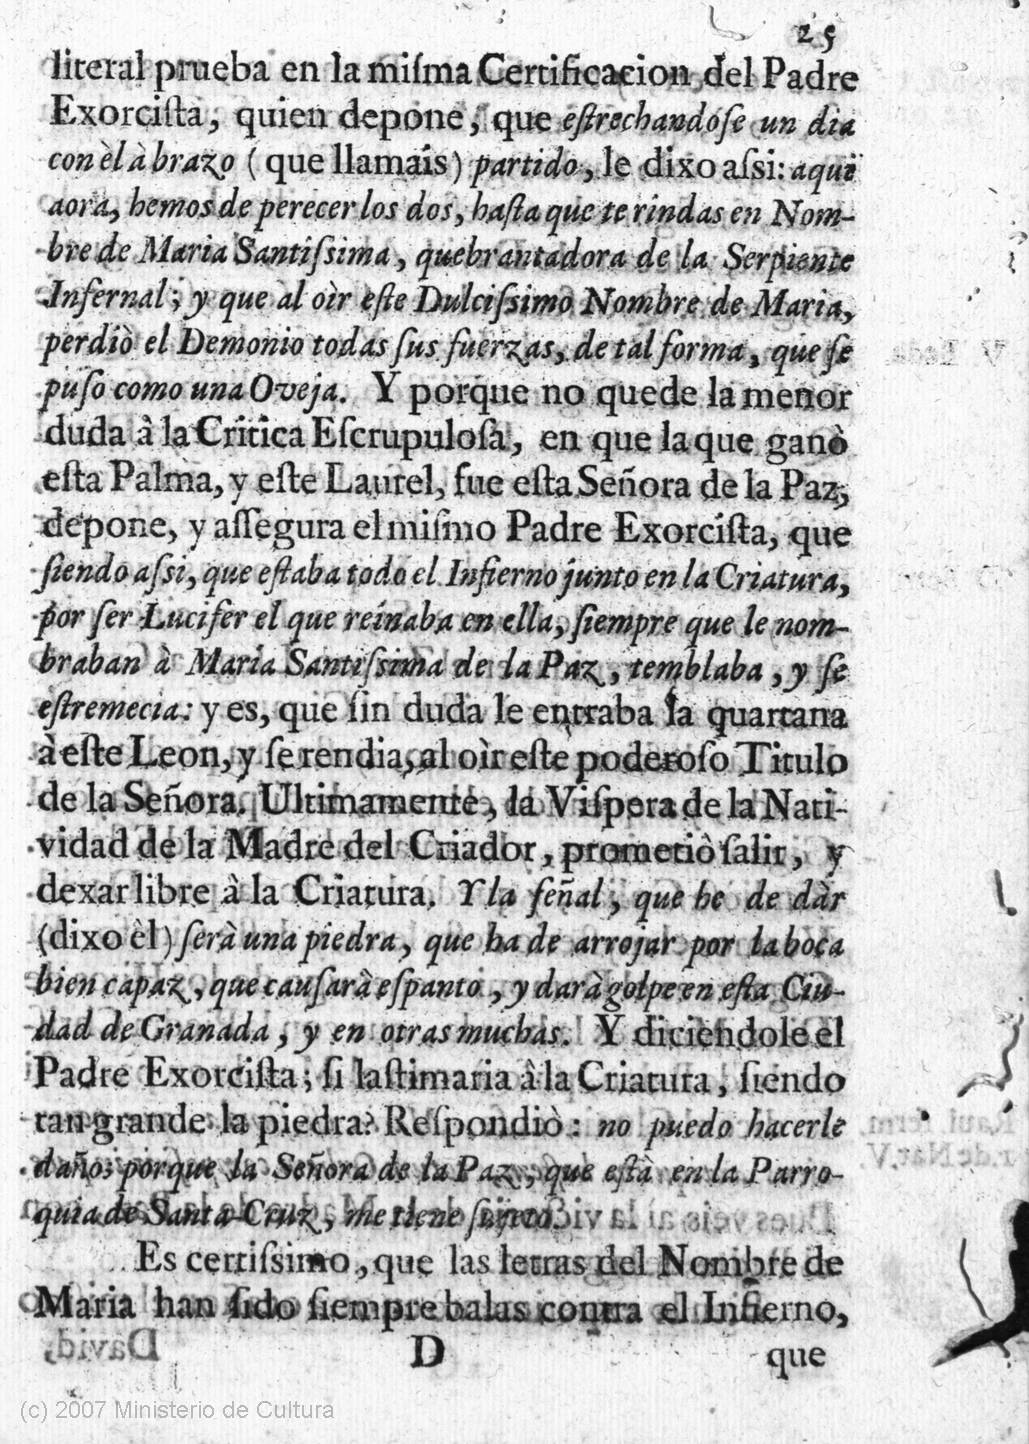 25
literal prueba en la miſma Certificacion del Padre
Exorciſta, quien depone, que eſtrechandoſe un dia
con èl à brazo (que llamais) partido, le dixo aſsi: aqui
aora, hemos de perecer los dos, haſta que te rindas en Nom-
bre de Maria Santiſsima, quebrantadora de la Serpiente
Infernal; y que al oìr eſte Dulciſsimo Nombre de Maria,
perdiò el Demonio todas ſus fuerzas, de tal forma, que ſe
puſo como una Oveja. Y porque no quede la menor
duda à la Critica Eſcrupuloſa, en que la que ganò
eſta Palma, y eſte Laurel, fue eſta Señora de la Paz,
depone, y aſſegura el miſmo Padre Exorciſta, que
ſiendo aſsi, que eſtaba todo el Infierno junto en la Criatura,
por ſer Lucifer el que reinaba en ella, ſiempre que le nom-
braban à Maria Santiſsima de la Paz, temblaba, y ſe
eſtremecia: y es, que ſin duda le entraba la quartana
à eſte Leon, y ſe rendia, al oìr eſte poderoſo Titulo
de la Señora. Ultimamente, la Viſpera de la Nati-
vidad de la Madre del Criador, prometiò ſalir, y
dexar libre à la Criatura. Y la ſeñal, que he de dàr
(dixo èl) ſerà una piedra, que ha de arrojar por la boca
bien capaz, que cauſarà eſpanto, y darà golpe en eſta Ciu-
dad de Granada, y en otras muchas. Y diciendole el
Padre Exorciſta; ſi laſtimaria à la Criatura, ſiendo
tan grande la piedra? Reſpondiò: no puedo hacerle
daño; porque la Señora de la Paz, que eſtà en la Parro-
quia de Santa Cruz, me tiene ſujeto.
Es certiſsimo, que las letras del Nombre de
Maria han ſido ſiempre balas contra el Infierno,
D que
(c) 2007 Ministerio de Cultura